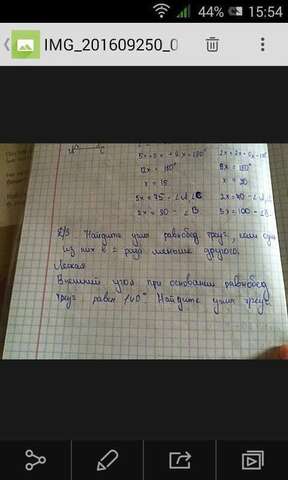 44% 15:54
IMG_201609250_0
12x = 180°
x = 15
5x = 75 - ∠A, ∠C
2x = 30 - ∠B
2x + 2x + 5x = 180°
9x = 180°
x = 20
5x = 100 - ∠B
Д/З. Найдите углы равнобед треуг, если один
из них в 2 раза меньше другого.
Легкая
Внешний угол при основании равнобед
треуг равен 140° Найдите углы треуг.